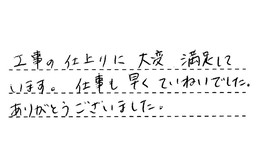 工事の仕上りに 大変 満足して
います。 仕事も 早く ていねいでした。
ありがとうございました。